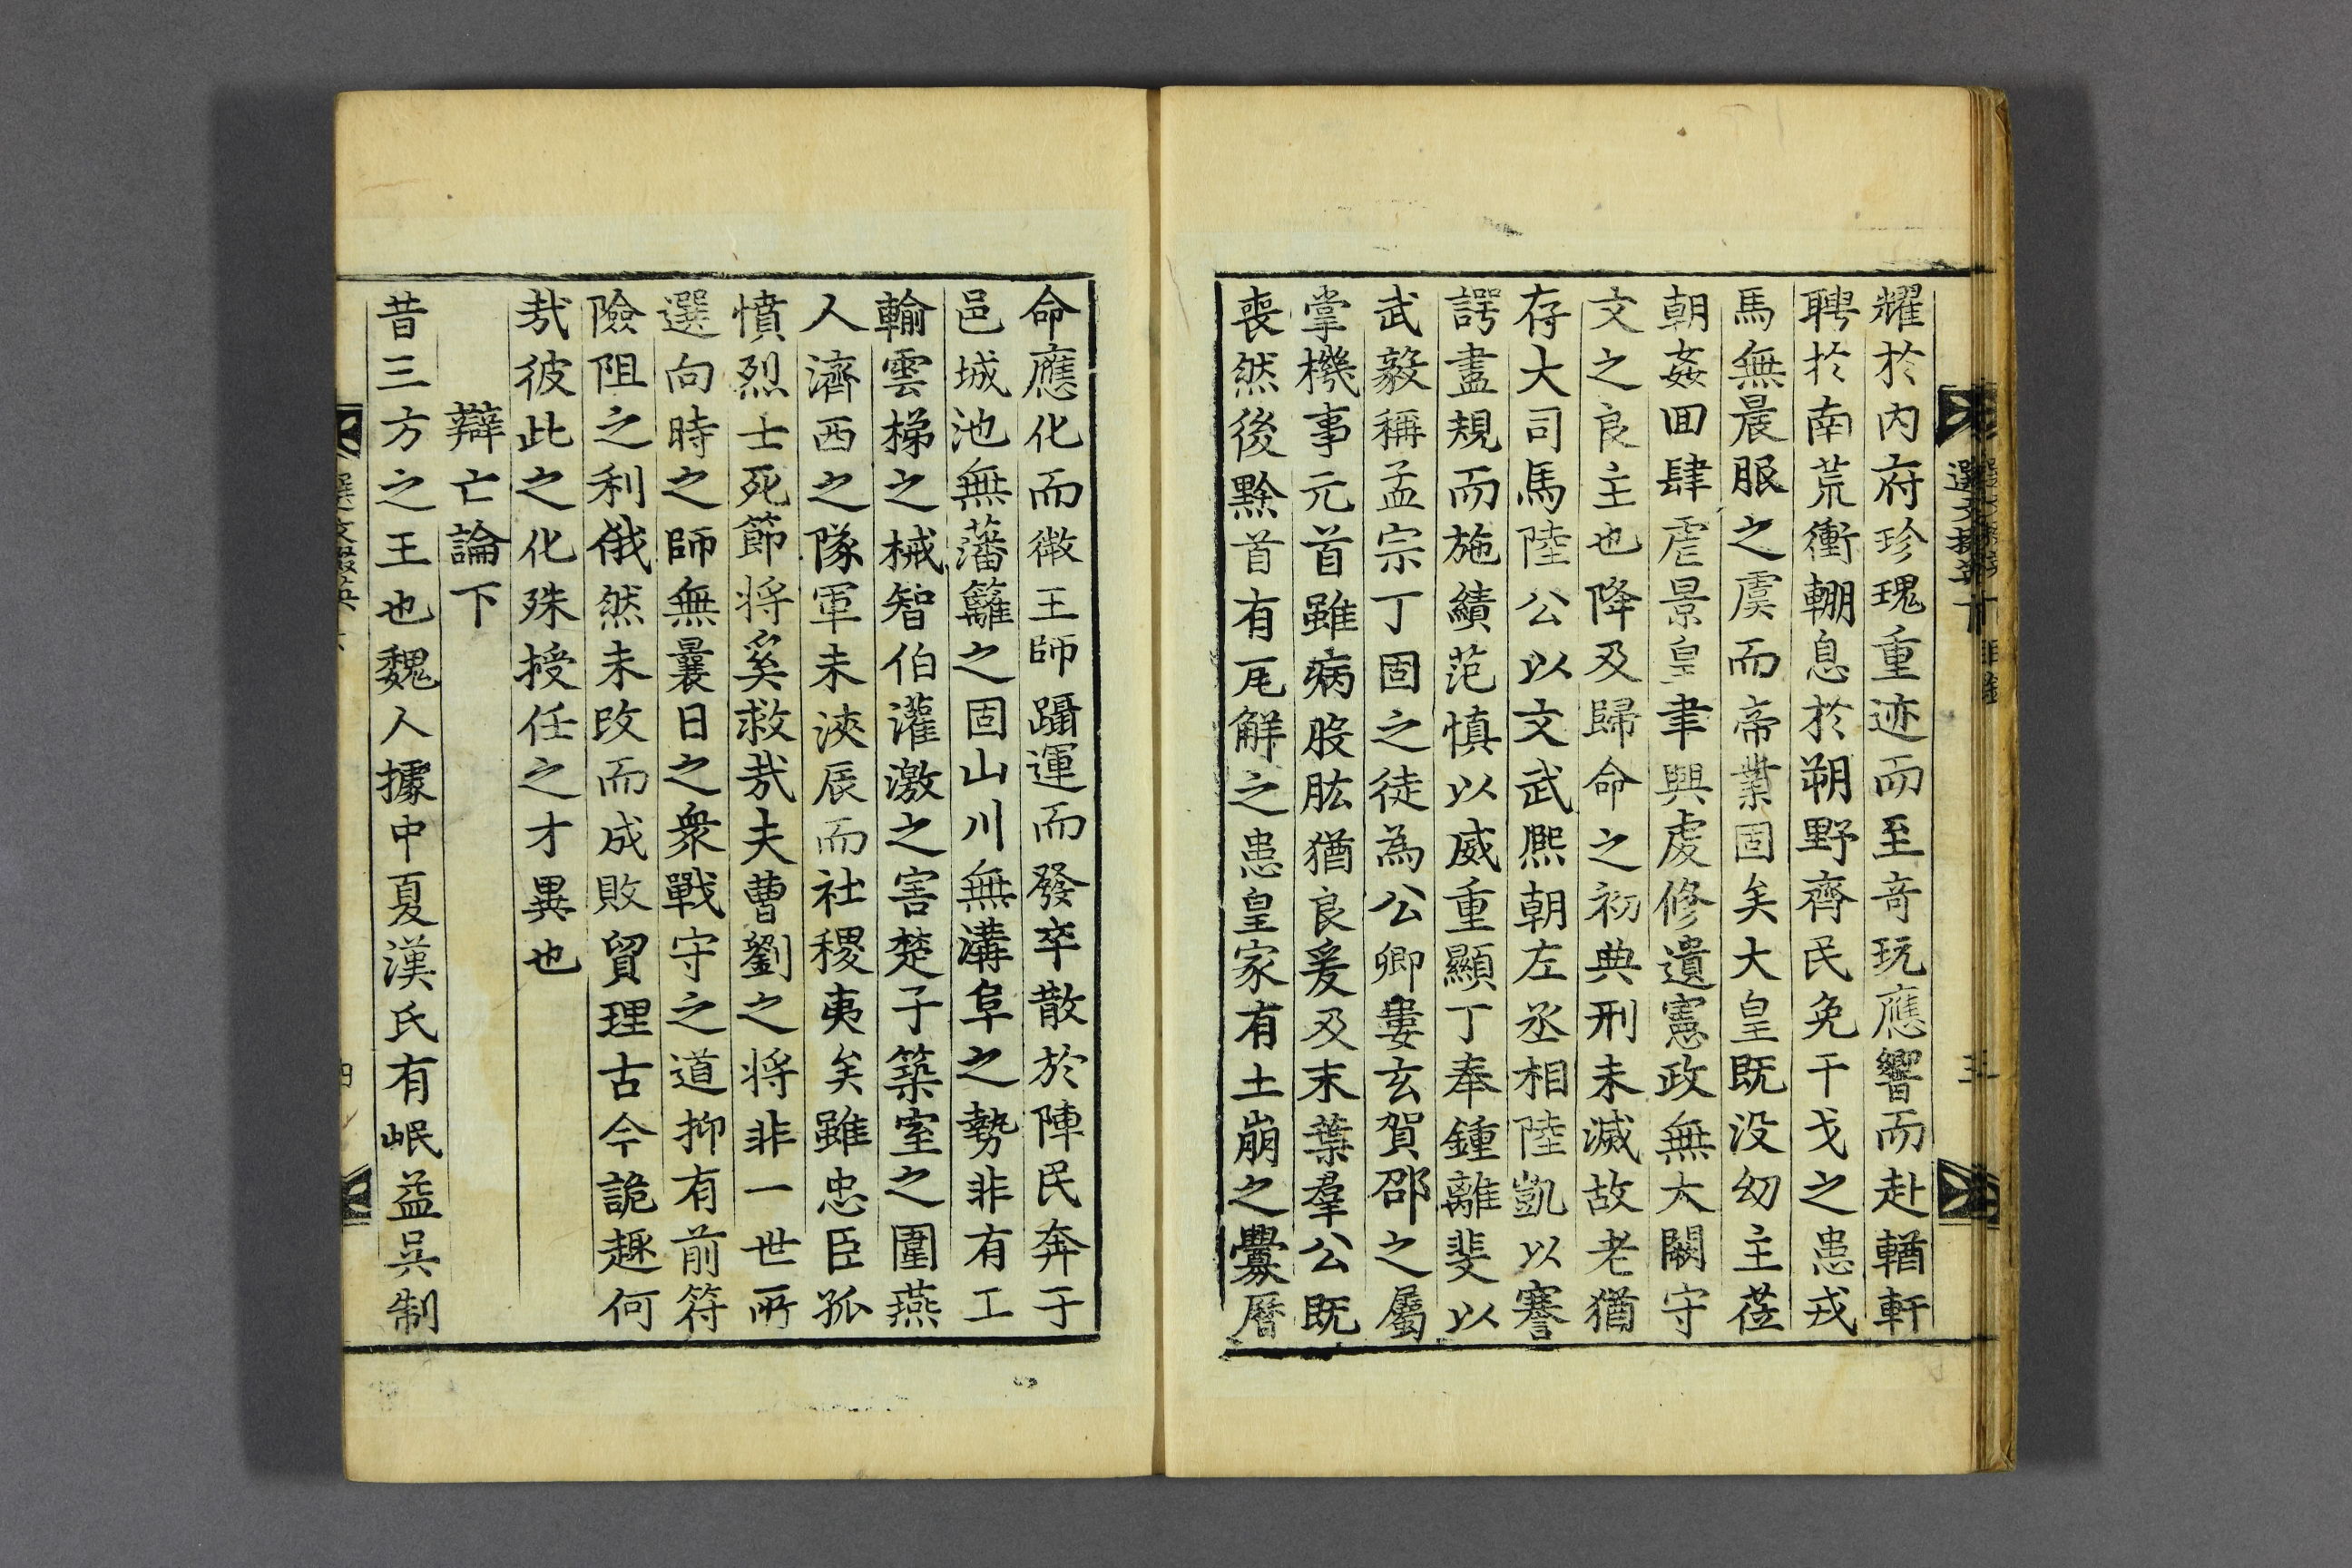 耀於內府珍瑰重迹而至奇玩應響而赴輶軒
聘於南荒衝輣息於朔野齊民免干戈之患戎
馬無晨服之虞而帝業固矣大皇既没幼主莅
朝姦回肆虐景皇聿興虔修遺憲政無大闕守
文之良主也降及歸命之初典刑未滅故老猶
存大司馬陸公以文武熈朝左丞相陸凱以謇
諤盡規而施績范慎以威重顯丁奉鍾離斐以
武毅稱孟宗丁固之徒為公卿婁玄賀邵之屬
掌機事元首雖病股肱猶良爰及末葉羣公既
喪然後黔首有瓦解之患皇家有土崩之釁曆
命應化而微王師躡運而發卒散於陣民奔于
邑城池無藩籬之固山川無溝阜之勢非有工
輸雲梯之械智伯灌激之害楚子築室之圍燕
人濟西之隊軍未浹辰而社稷夷矣雖忠臣孤
憤烈士死節将奚救㢤夫曹劉之将非一世所
選向時之師無曩日之衆戰守之道抑有前符
險阻之利俄然未改而成敗貿理古今詭趣何
㢤彼此之化殊授任之才異也
辯亡論下
昔三方之王也魏人據中夏漢氏有岷益吳制